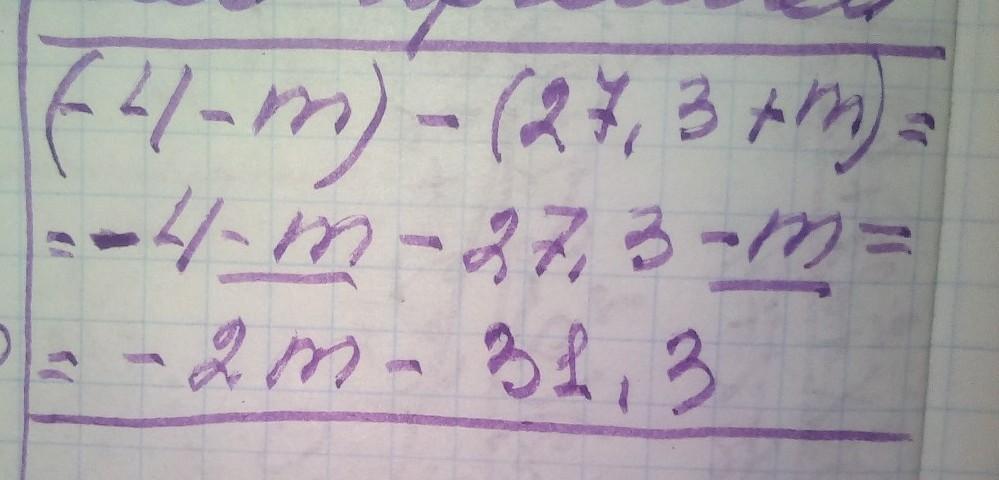 (-4-m)-(27,3+m)=
=-4-m-27,3-m=
=-2m-31,3